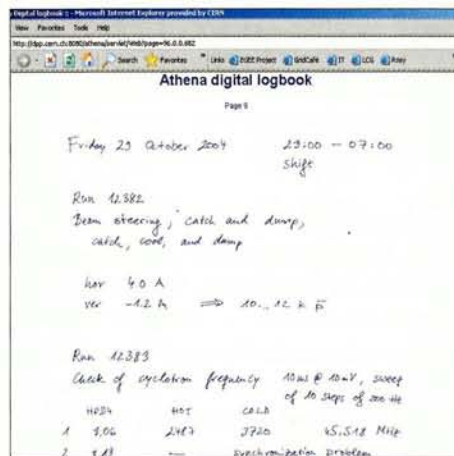 Digital logbook :: - Microsoft Internet Explorer provided by CERN
View Favorites Tools Help
Search Favorites Links EGEE Project GridCafe IT LCG Roxy
Athena digital logbook
Page 6
Friday 29 October 2004 23:00 – 07:00
shift
Run 12382
Beam steering, catch and dump,
catch, cool, and dump
hor 4.0 A
ver -1.2 A ⇒ 10..12 k p̄
Run 12383
Check of cyclotron frequency 10 ms @ 10 mV, sweep
of 10 steps of
HOT COLD
1 1,06 2487 3720 45.518 MHz
2 — synchronization problem